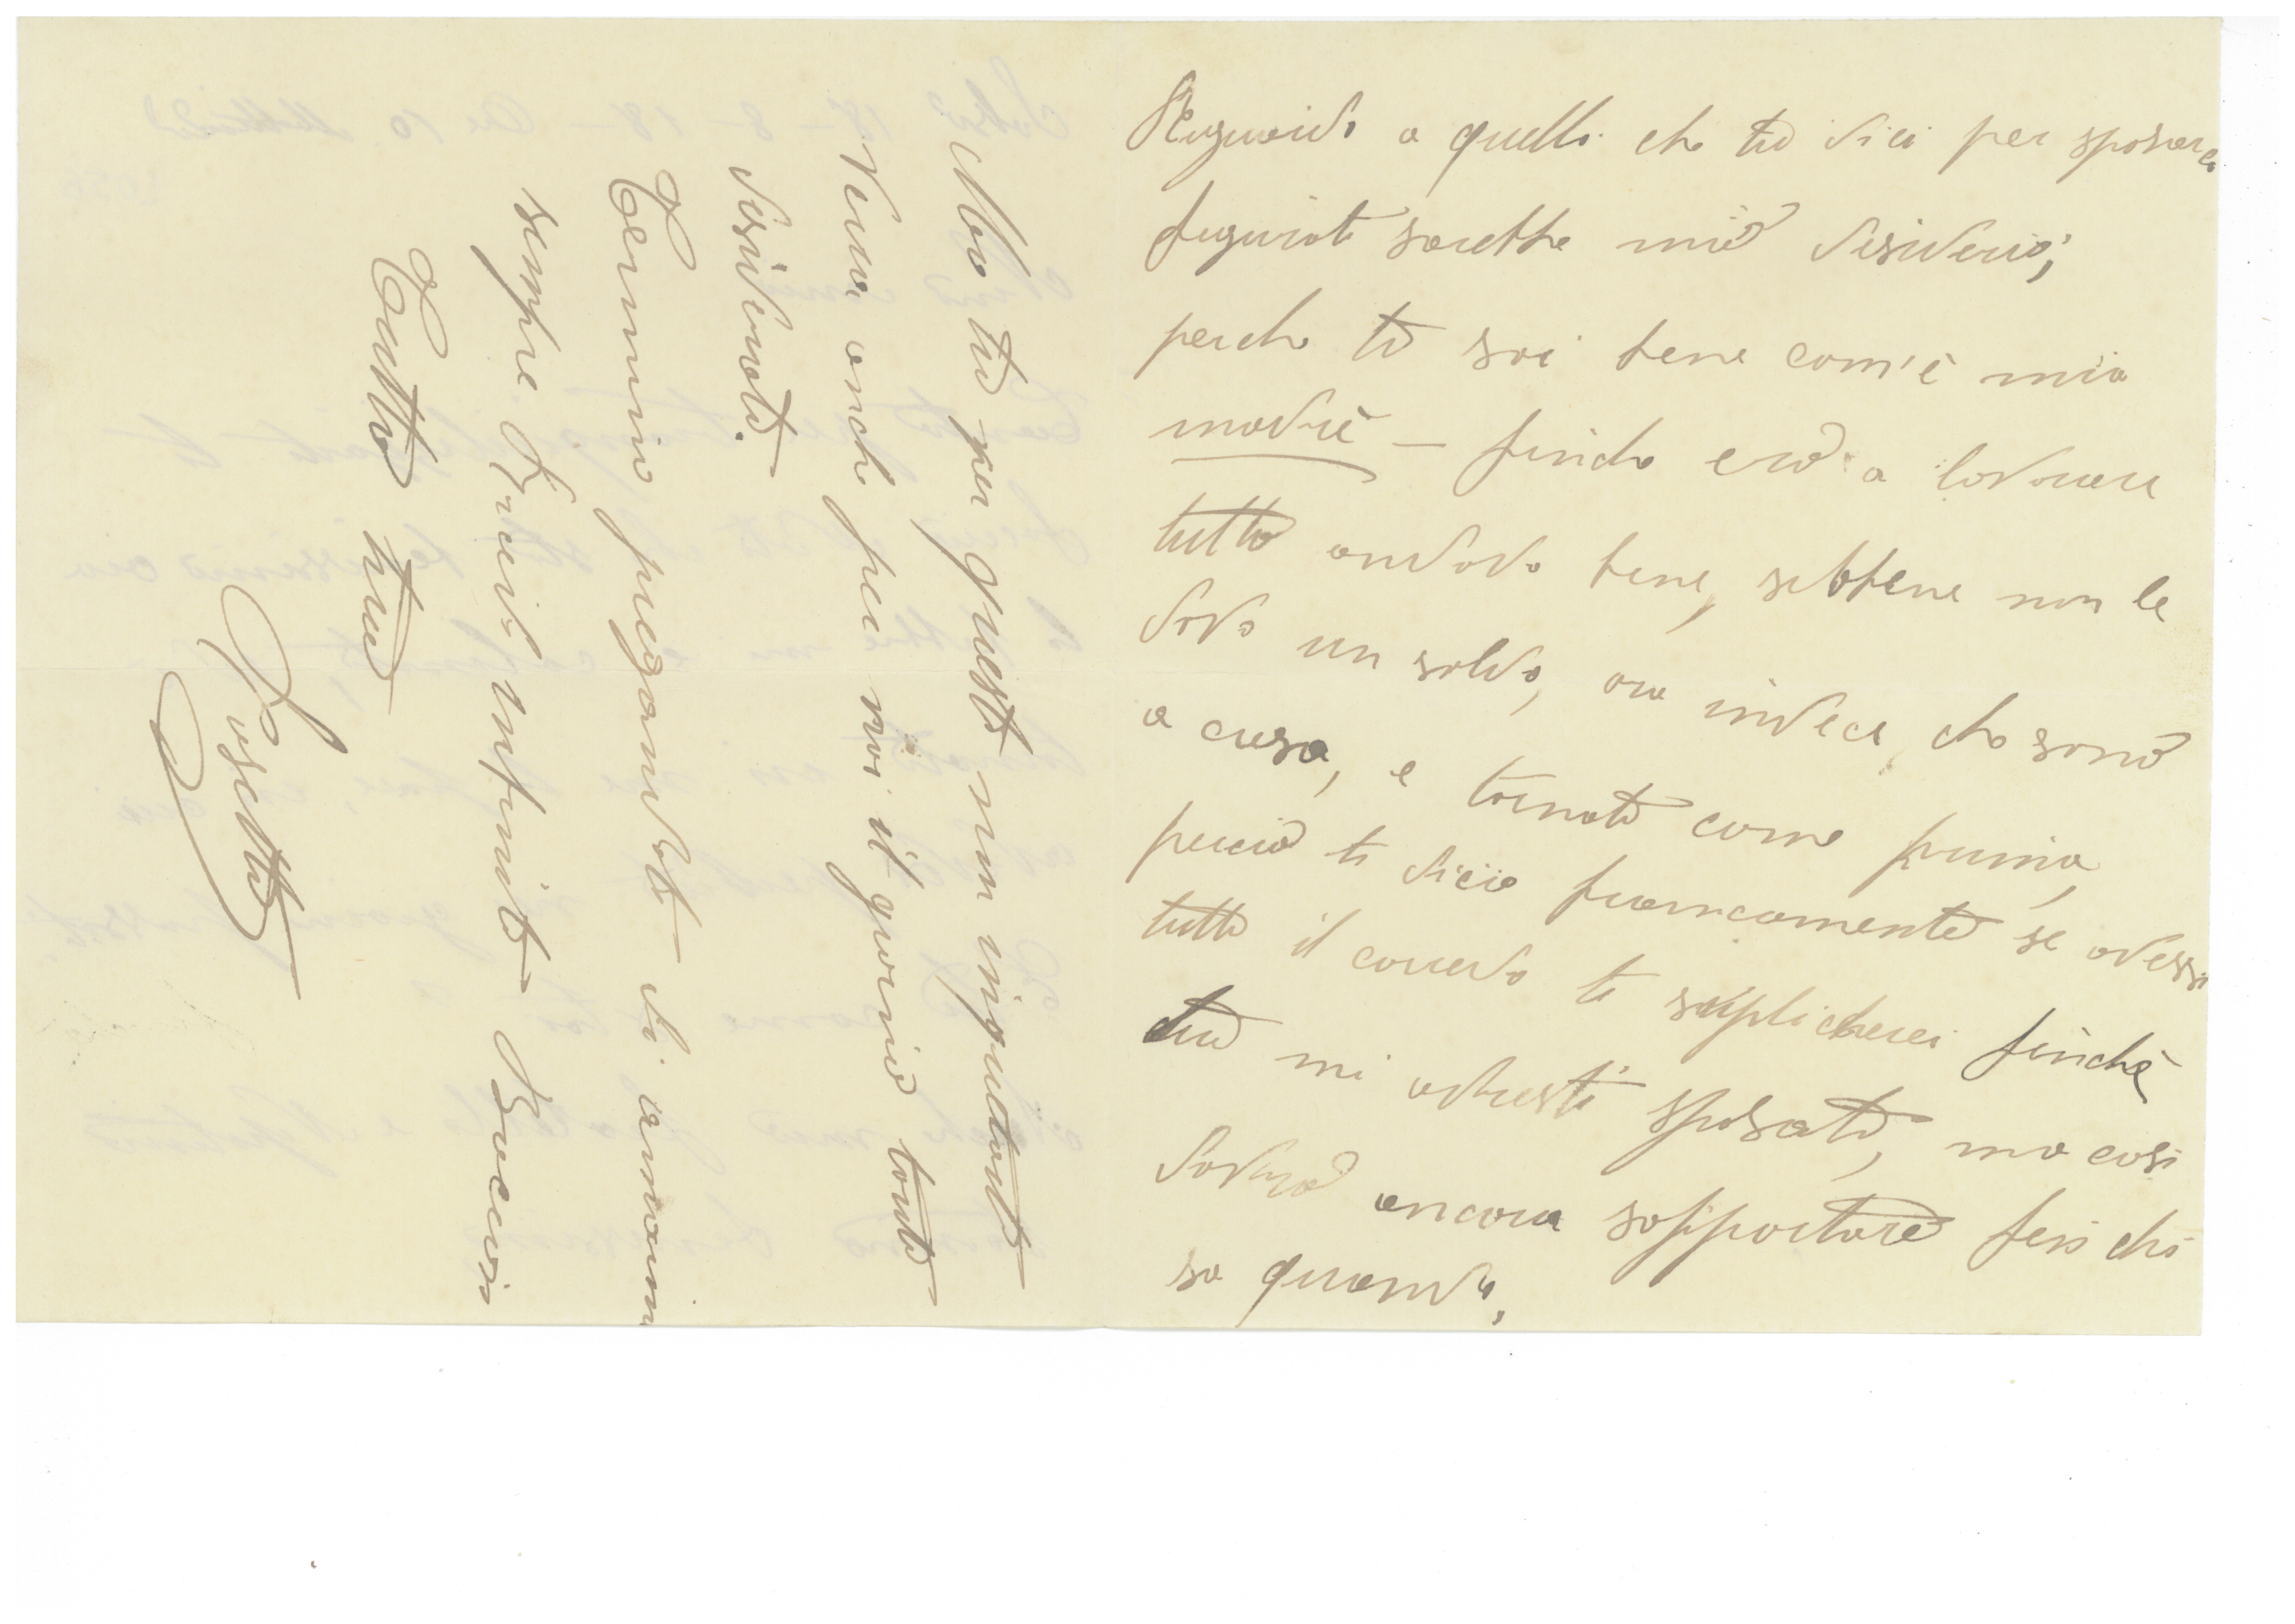 Riguardo a quello che tu dici per sposarci
figurati sarebbe mio desiderio;
perche tu sai bene com'è mia
madre – finche ero a lavorare
tutto andava bene, sebbene non le
davo un soldo, ora invece, che sono
a casa, e tornato come prima,
perciò ti dicio francamente se avessi
tutto il corredo ti suplicherei finchè
tu mi avresti sposato, ma così
dovrò ancora sopportare fin chi
sa quando.
Ma tu per questo non inquietarti
Verra anche per noi il giorno tanto
desiderato.
Termino pregandoti di amarmi
sempre Ricevi infiniti Baccioni
Tutta tua